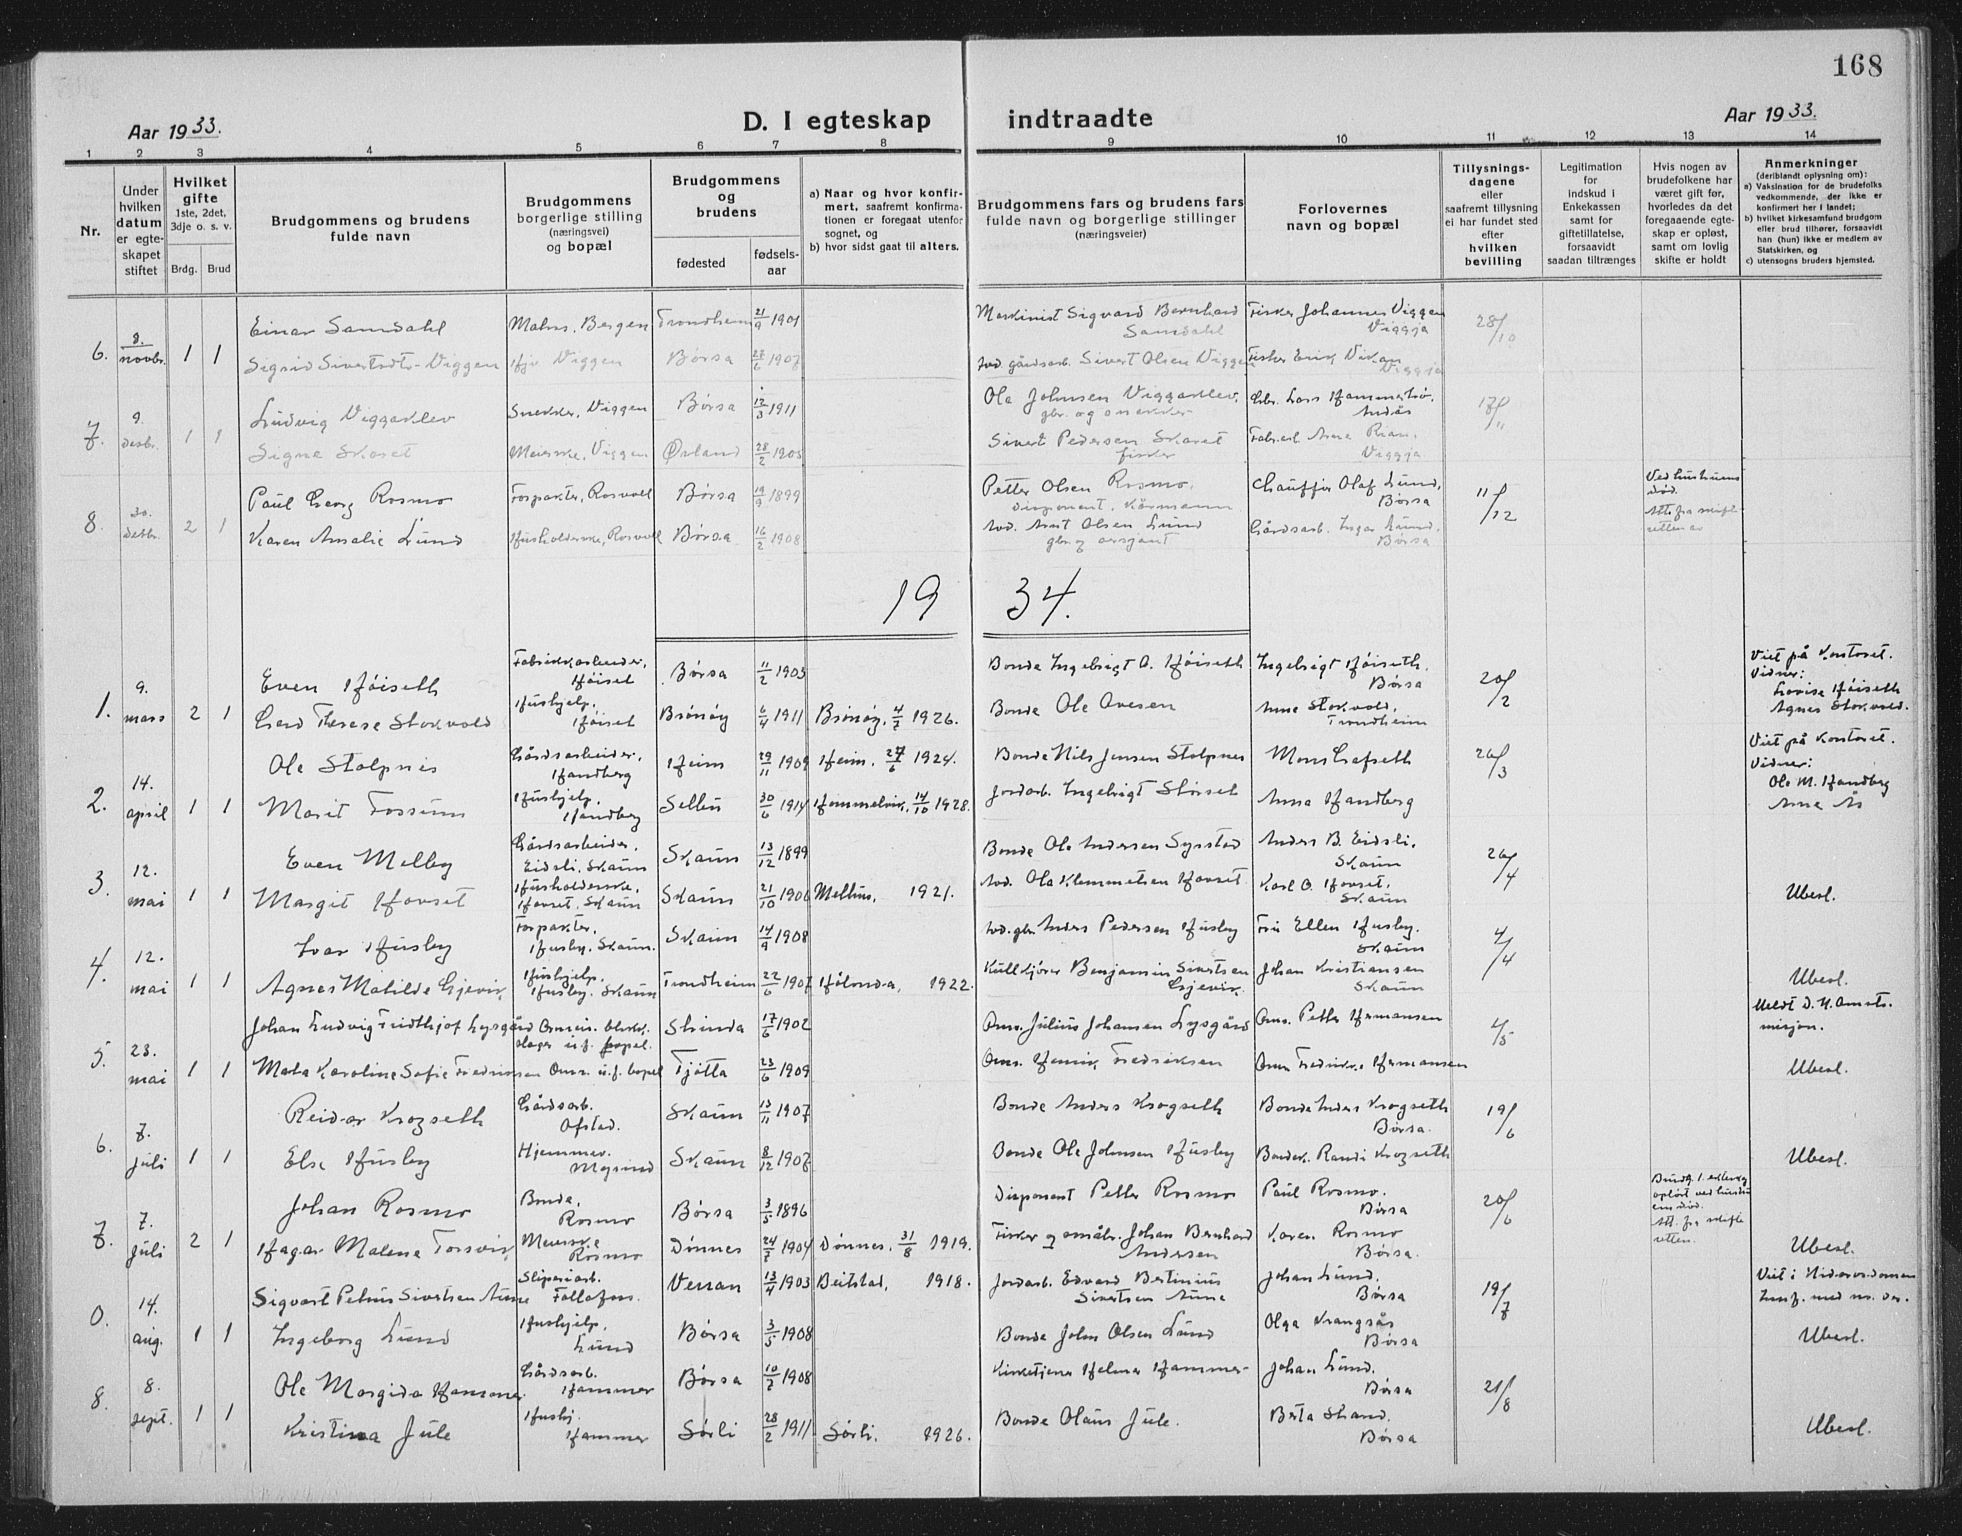 168
Aar 1933.
D. I egteskap indtraadte
Aar 1933.
1 2 3 4 5 6 7 8 9 10 11 12 13 14
Nr.
Under hvilken datum er egte-skapet stiftet
Hvilket gifte
1ste, 2det, 3dje o. s. v.
Brdg. Brud
Brudgommens og brudens fulde navn
Brudgommens borgerlige stilling (næringsvei) og bopæl
Brudgommens og brudens
fødested
fødsels-aar
a) Naar og hvor konfir-mert, saafremt konfirma-tionen er foregaat utenfor sognet, og
b) hvor sidst gaat til alters.
Brudgommens fars og brudens fars fulde navn og borgerlige stillinger (næringsveier)
Forlovernes navn og bopæl
Tillysnings-dagene eller saafremt tillysning ei har fundet sted efter hvilken bevilling
Legitimation for indskud i Enkekassen samt for giftetillatelse, forsaavidt saadan tiltrænges
Hvis nogen av brudefolkene har været gift før, hvorledes da det foregaaende egte-skap er opløst, samt om lovlig skifte er holdt
Anmerkninger
(deriblandt oplysning om):
a) Vaksination for de brudefolks vedkommende, der ikke er konfirmert her i landet;
b) hvilket kirkesamfund brudgom eller brud tilhører, forsaavidt han (hun) ikke er medlem av Statskirken, og
c) utensogns bruders hjemsted.
6. 8. novbr. 1 1
Einar Samdahl Maler, Bergen Trondheim 21/9 1901 Maskinist Sigvard Bernhard Samdahl Fisker Johannes Viggen Viggja 28/10
Sigrid Sivertsdtr. Viggen Hjv Viggen Børsa 27/6 1907 Avd. gårdsarb. Sivert Olsen Viggen Fisker Erik Vikan Viggja
7. 9. desbr. 1 1
Ludvig Viggaklev Snekker, Viggen Børsa 12/3 1911 Ole Johnsen Viggaklev, gbr. og snekker Gbr. Lars Hammerbø, 17/11
Signe Skaret Meierske, Viggen Ørland 28/2 1905 Sivert Pedersen Skaret fisker Fabrarb. Arne Rian, Viggja
8. 30. desbr. 2 1
Paul Georg Rosmo Forpakter, Rosvoll Børsa 19/9 1899 Petter Olsen Rosmo, disponent, Chauffør Olaf Lund, Børsa 11/12 Ved hustruens død. Att. fra skifteretten av
Karen Amalie Lund Husholderske, Rosvoll Børsa 16/2 1908 Avd. Arnt Olsen Lund gbr. og Gårdsarb. Ingar Lund, Børsa
1934.
1. 9. mars 2 1
Even Høiseth Fabrikkarbeider, Høiset Børsa 11/2 1903 Bonde Ingebrigt O. Høiseth Ingebrigt Høiseth, Børsa 20/2 Viet på Kontoret. Vidner: Lovise Høiseth Agnes Stokvold.
Gerd Therese Stokvold Hushjelp, Høiset Brønøy 6/4 1911 Brønøy, 4/7 1926. Bonde Ole Ovesen Anne Stokvold, Trondheim
2. 14. april 1 1
Ole Stolpnes Gårdsarbeider, Handberg Heim 29/11 1909 Heim. 27/6 1924. Bonde Nils Jensen Stolpnes Mons Gafseth 26/3 Viet på Kontoret. Vidner: Ole M. Handberg Arne Ås
Marit Fossum Hushjelp, Handberg Selbu 30/6 1914 Hommelvik, 14/10 1928. Jordarb. Ingebrigt Størset Anna Handberg
3. 12. mai 1 1
Even Melby Gårdsarbeider, Eidsli, Skaun Skaun 13/12 1899 Bonde Ole Andersen Sysstad Anders B. Eidsli, Skaun 26/4
Margit Hovset Husholderske, Hovset, Skaun Skaun 21/10 1906 Melhus, 1921. Avd. Ola Klemmetsen Hovset Karl O. Hovset, Skaun Ubesl.
4. 12. mai 1 1
Ivar Husby Forpakter, Husby, Skaun. Skaun 14/9 1908 Avd. gbr. Anders Pedersen Husby Fru Ellen Husby. Skaun 4/4
Agnes Matilde Gjevik Hushjelp, Husby. Skaun Trondheim 22/6 1907 Hølonda, 1922. Kullkjører Benjamin Sivertsen Gjevik. Johan Kristiansen Skaun Ubesl.
5. 23. mai 1 1
Johan Ludvig Fridthjof Lysgård Omreis. blikk. slager u.f. bopel. Strinda 17/6 1902 Omr. Julius Johansen Lysgård Omr. Petter Hermansen 4/5 Meldt D. H. Omstr. misjon.
Mata Karoline Sofie Fredriksen Omr. u.f. bopel Tjøtta 23/6 1909 Omr. Henrik Fredriksen Omr. Fredrikke Hermansen Ubesl.
6. 7. juli 1 1
Reidar Krogseth Gårdsarb. Ofstad. Skaun 13/11 1907 Bonde Anders Krogseth Bonde Anders Krogseth Børsa. 19/6
Else Husby Hjemmev. Skaun 8/12 1907 Bonde Ole Johnsen Husby Bondek. Randi Krogseth Ubesl.
7. 7. juli 2 1
Johan Rosmo Bonde, Rosmo Børsa 3/5 1896 Disponent Petter Rosmo Paul Rosmo. Børsa 20/6 Brudg. 1. ektesk. opløst ved hustruens død. Att. fra skifteretten.
Hagar Malene Torsvik Meierske Rosmo Dønnes 24/7 1904 Dønnes, 31/8 1919. Fisker og småbr. Johan Bernhard Andersen Karen Rosmo Børsa. Ubesl.
0. 14. aug. 1 1
Sigvart Petrus Sivertsen Aune Sliperiarb. Follafos. Verran 13/4 1903 Beitstad, 1918. Jordarb. Edvard Bertinius Sivertsen Aune Johan Lund. Børsa 19/7 Viet i Nidarosdomen
Ingeborg Lund Hushjelp, Lund Børsa 3/5 1908 Bonde John Olsen Lund Olga Krangsås Børsa Ubesl.
8. 8. sept. 1 1
Ole Margido Hammer Gårdsarb. Hammer Børsa 10/2 1908 Kirketjener Helmer Hammer Johan Lund. Børsa 21/8
Kristina Jule Hushj. Hammer Sørli 28/2 1911 Sørli. 1926. Bonde Olaus Jule. Berta Strand. Børsa Ubesl.